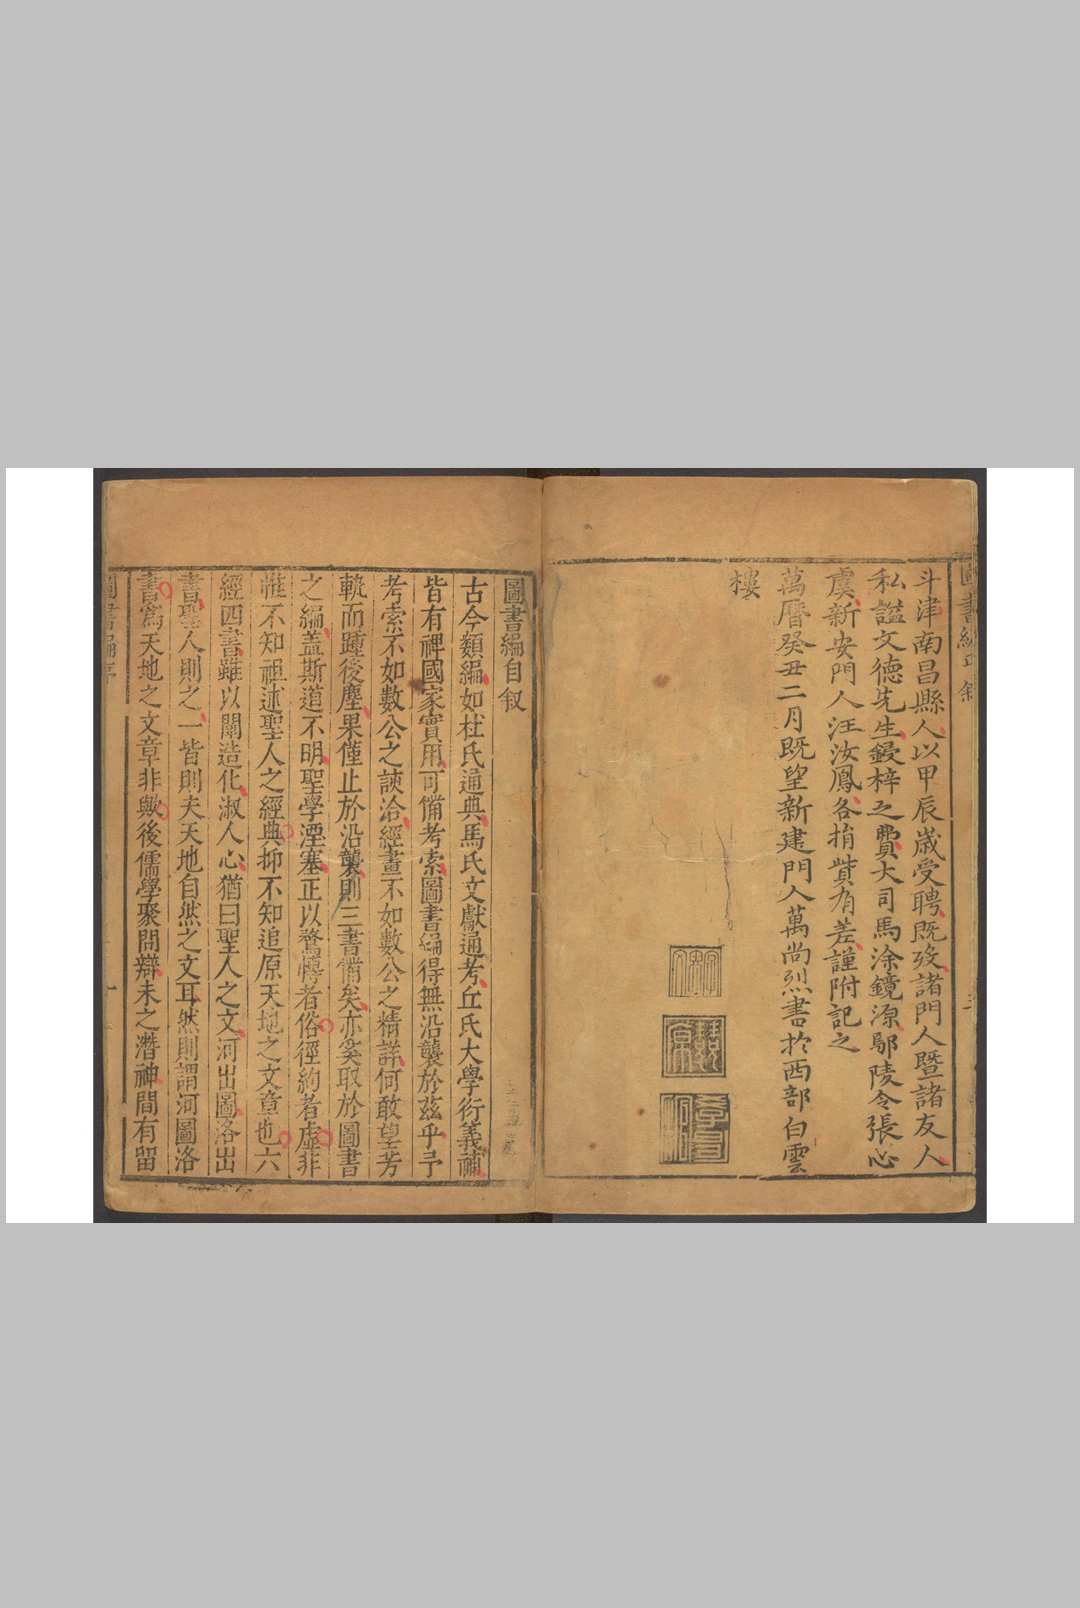 斗津南昌縣人以甲辰歲受聘既歿諸門人暨諸友人
私謚文德先生鋟梓之費大司馬涂鏡源鄢陵令張心
虞新安門人汪汝鳳各捐貲有差謹附記之
萬曆癸丑二月既望新建門人萬尚烈書於西部白雲
樓
圖書編自叙
古今類編如杜氏通典馬氏文獻通考丘氏大學衍義補
皆有裨國家實用可備考索圖書編得無沿襲於茲乎予
考索不如數公之該洽經畫不如數公之精詳何敢望芳
軌而踵後塵果僅止於沿襲則三書備矣亦奚取於圖書
之編蓋斯道不明聖學湮塞正以騖博者俗徑約者虛非
惟不知祖述聖人之經典抑不知追原天地之文章也六
經四書雖以闡造化淑人心猶曰聖人之文河出圖洛出
書聖人則之一皆則夫天地自然之文耳然則謂河圖洛
書爲天地之文章非歟後儒學聚問辯未之潛神間有留